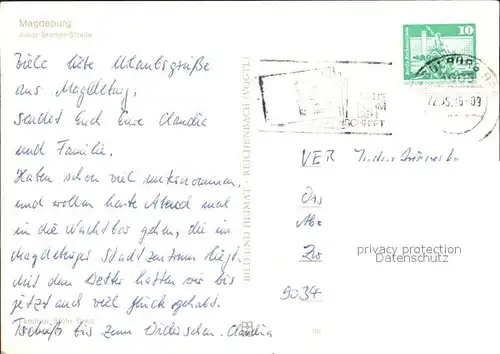 Magdeburg
Julius-Bremer-Straße
Viele liebe Urlaubsgrüße
aus Magdeburg,
sendet Euch Eure Claudia
und Familie.
Haben schon viel unternommen,
und wollen heute Abend mal
in die Nachtbar gehen, die im
Magdeburger Stadtzentrum liegt.
Mit dem Wetter hatten wir bis
jetzt auch viel Glück gehabt.
Tschüß bis zum Wiedersehen. Claudia
BILD UND HEIMAT · REICHENBACH (VOGTL)
10
VEB
9034
privacy protection
Datenschutz